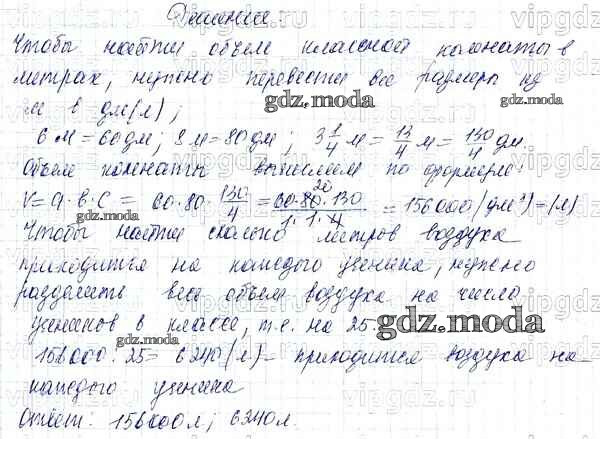 Решение
Чтобы найти объем классной комнаты в
литрах, нужно перевести все размеры из
м в дм(л);
6 м = 60 дм; 8 м = 80 дм; 3 1/4 м = 13/4 м = 130/4 дм.
Объем комнаты вычисляем по формуле:
V = a · b · c = 60 · 80 · 130/4 = 60 · 80 20 · 130 / 1 · 1 · 4 = 156000 (дм³) = (л)
Чтобы найти сколько литров воздуха
приходится на каждого ученика, нужно
разделить весь объем воздуха на число
учеников в классе, т.е. на 25.
156000 : 25 = 6240 (л) – приходится воздуха на
каждого ученика
Ответ: 156000 л; 6240 л.
gdz.moda
gdz.moda
gdz.moda
gdz.moda
gdz.moda
gdz.moda
vipgdz.ru